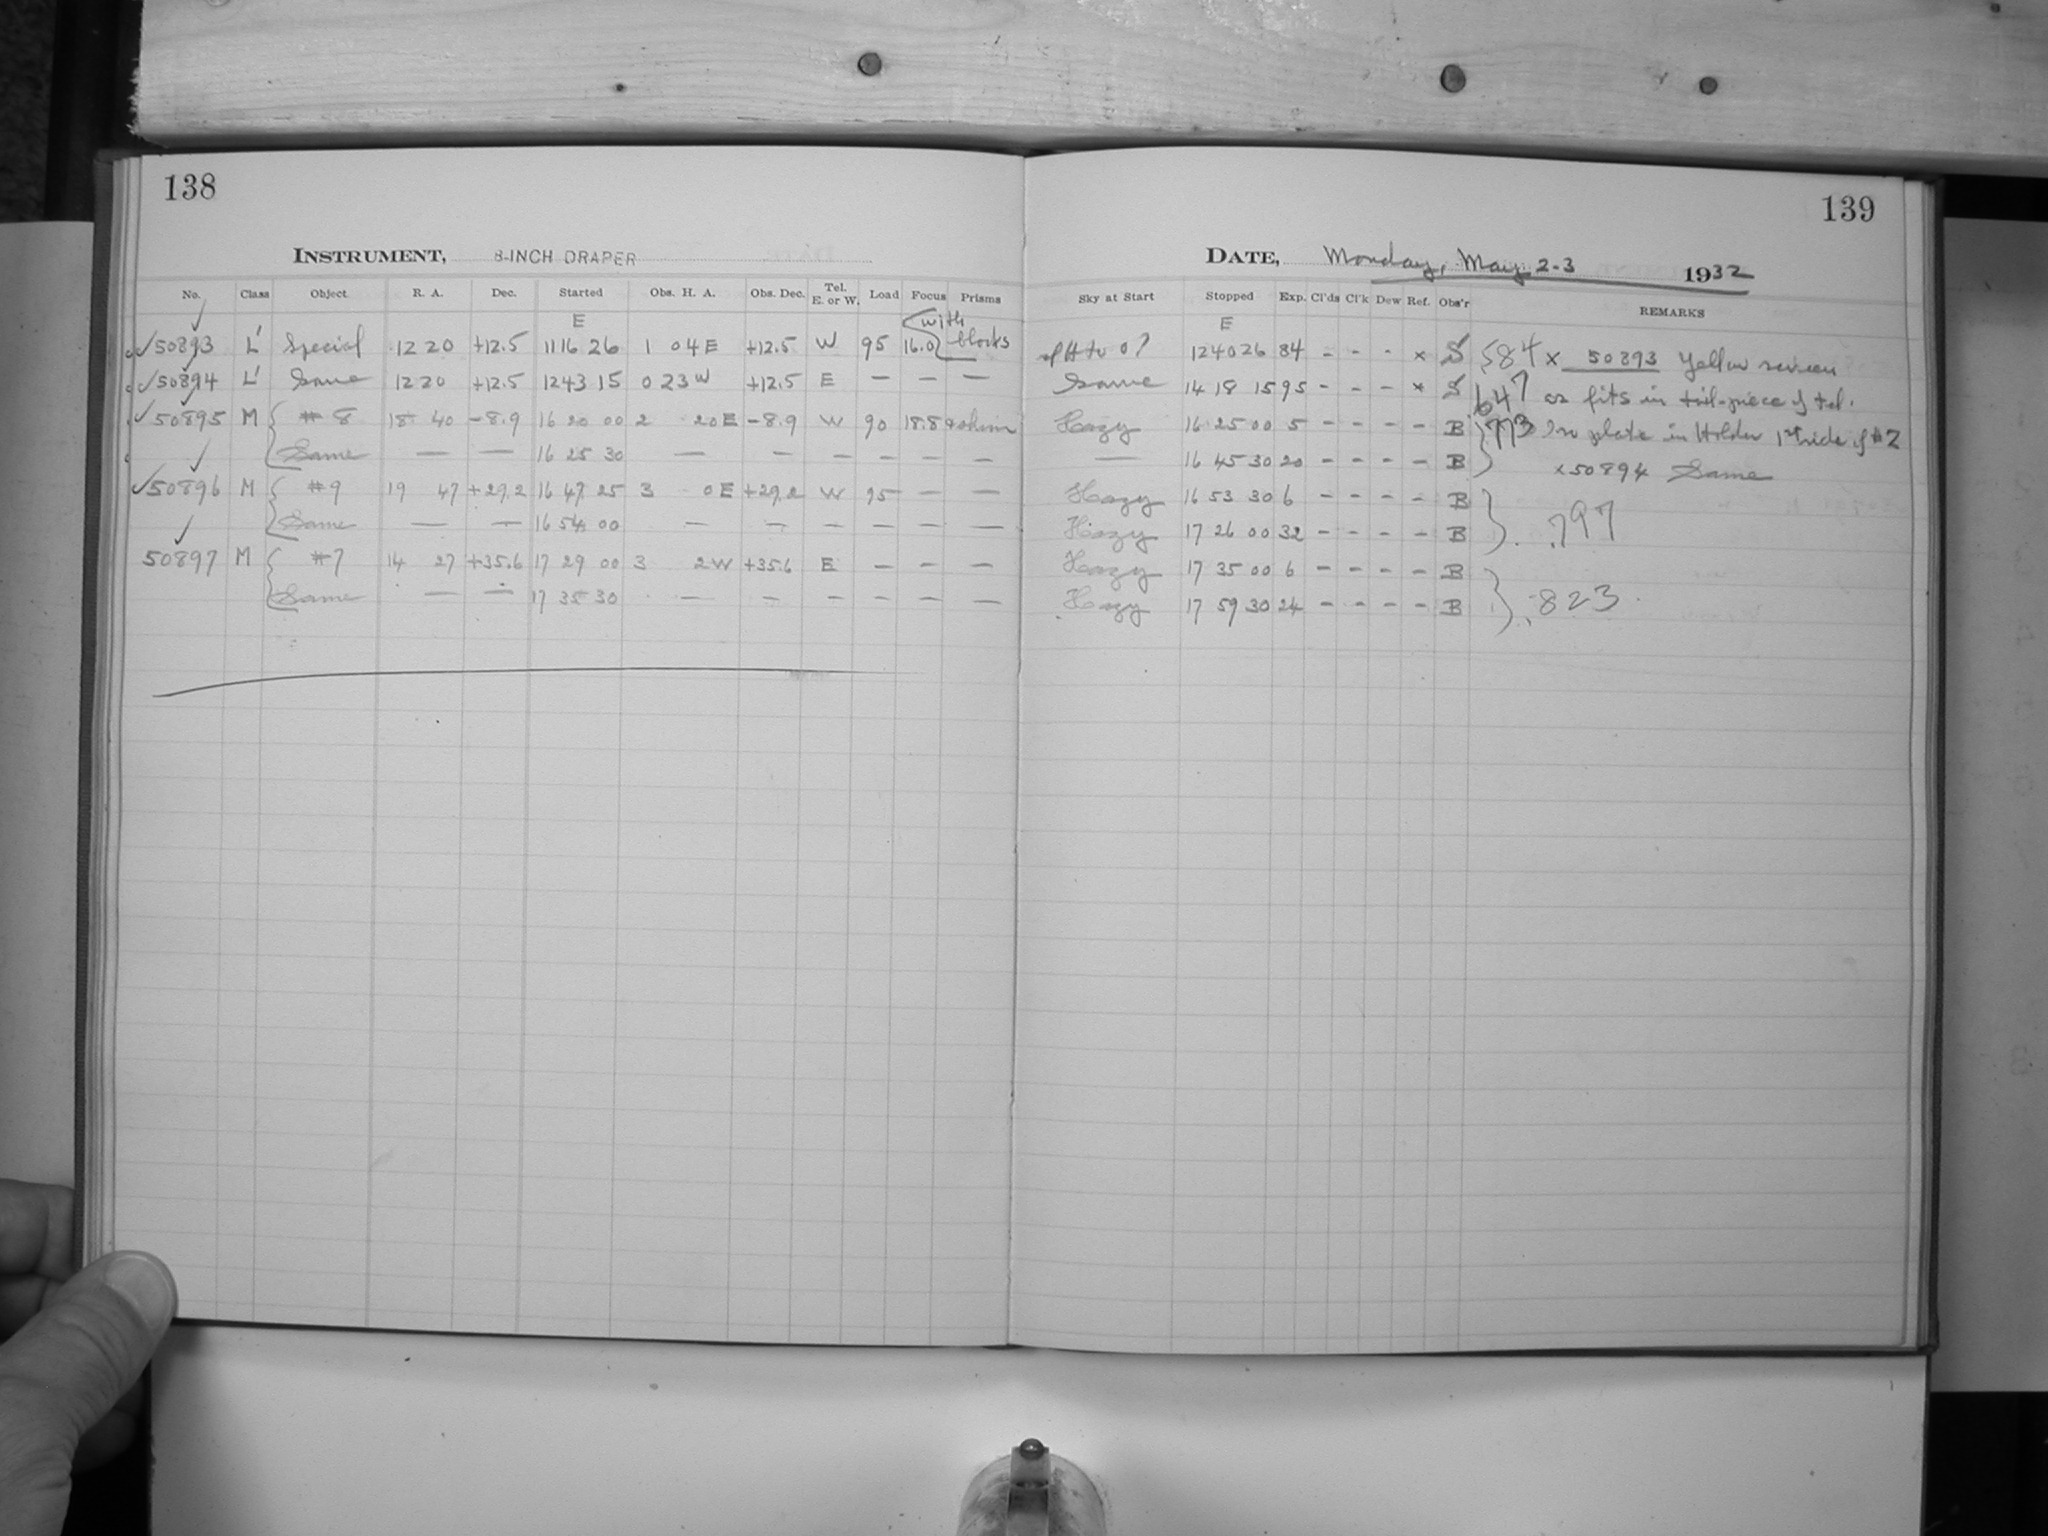 138
139
INSTRUMENT, 8-INCH DRAPER
DATE, Monday, May 2-3 1932
No. Class Object R. A. Dec. Started Obs. H. A. Obs. Dec. Tel. E. or W. Load Focus Prisms
Sky at Start Stopped Exp. Cl'ds Cl'k Dew Ref. Obs'r REMARKS
E with E
✓50893 L' Special 12 20 +12.5 11 16 26 1 04 E +12.5 W 95 16.0 blocks
to 0? 12 40 26 84 - - - x S 584 x 50893 Yellow screen
✓50894 L' Same 12 20 +12.5 12 43 15 0 23 W +12.5 E — — —
Same 14 18 15 95 - - - x S 647 as fits in tail-piece of tel.
✓50895 M { #8 18 40 -8.9 16 20 00 2 20 E -8.9 W 90 18.8
Hazy 16 25 00 5 - - - - B } 773 plate in Holder 1st side of #2
Same — — 16 25 30 — — — — — —
— 16 45 30 20 - - - - B x50894 Same
✓50896 M { #9 19 47 +29.2 16 47 25 3 0 E +29.2 W 95 — —
Hazy 16 53 30 6 - - - - B
Same — — 16 54 00 — — — — — —
Hazy 17 26 00 32 - - - - B } .797
50897 M { #7 14 27 +35.6 17 29 00 3 2 W +35.6 E — — —
Hazy 17 35 00 6 - - - - B
Same — — 17 35 30 — — — — — —
Hazy 17 59 30 24 - - - - B } .823